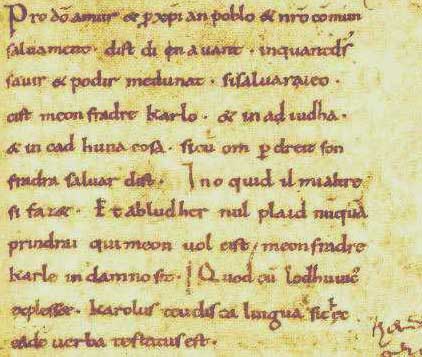 Pro dō amur & p xpīan poblo & nrō cōmun
saluament. dist di en auant. inquantdš
sauir & podir medunat. sisaluaraieo.
cist meon fradre karlo. & in ad iudha.
& in cad huna cosa. sicū om p dreit son
fradra saluar dist. Ino quid il mialtre
si faz&. Et abludher nul plaid nūquā
prindrai qui meon uol cist meon fradre
karle in damno sit. Quod cū lodhuuic
explesset. karolus teudisca lingua sic
eade uerba testatus est.